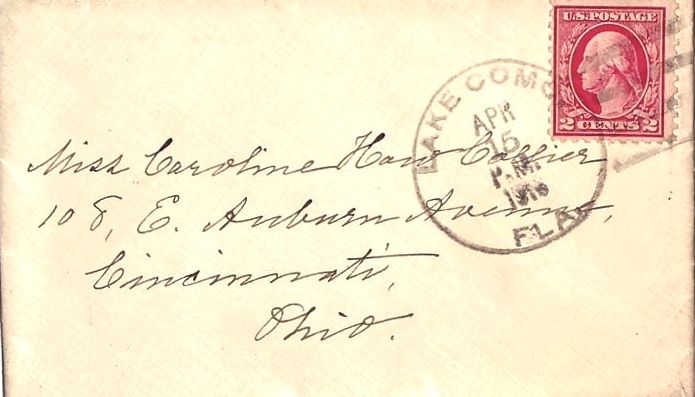 U.S. POSTAGE
2 CENTS 2
LAKE COMO
APR
15
P.M.
FLA
Miss Caroline Collier
108, E. Auburn Avenue,
Cincinnati,
Ohio.